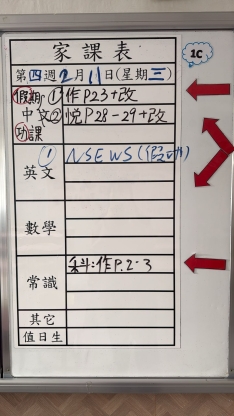 1C
家課表
第四週2月11日(星期三)
假期 ①作P23+改
中文②悅P28-29+改
功課
英文 ① NSEWS(假期)
數學
常識 科:作P.2-3
其它
值日生